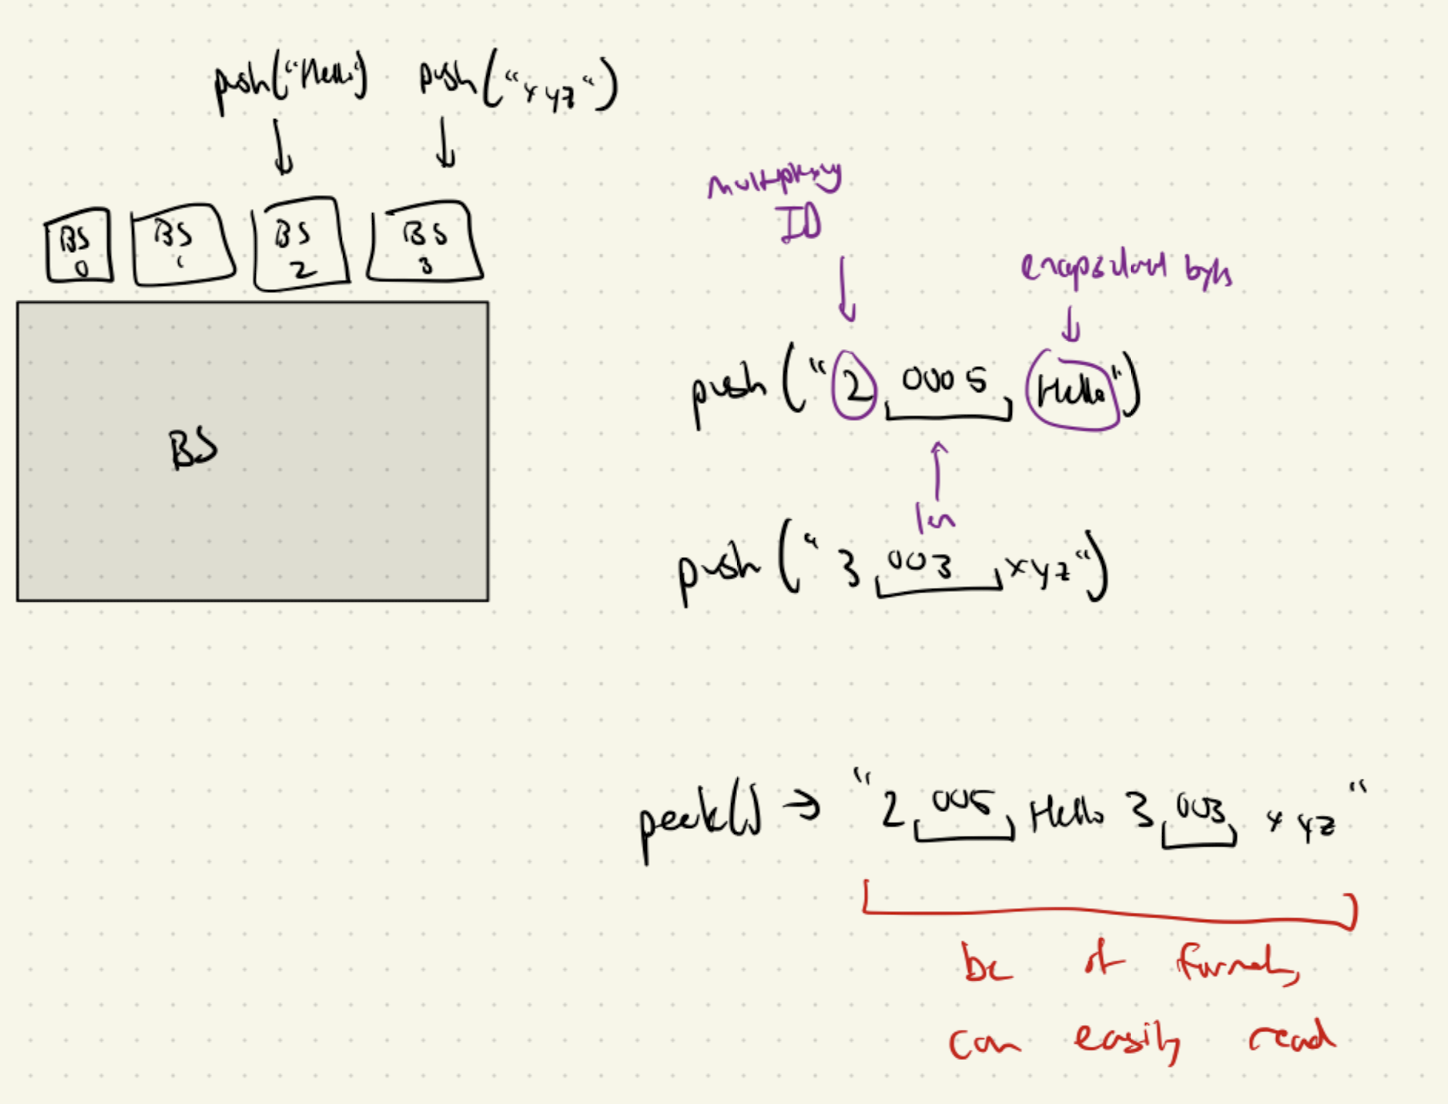 push("Hello") push("xyz")
BS 0
BS 1
BS 2
BS 3
BS
multiplexing
ID
encapsulated bytes
push("2 0005 Hello")
len
push("3 003 xyz")
peek() → "2 005 Hello 3 003 xyz"
bc of format,
can easily read